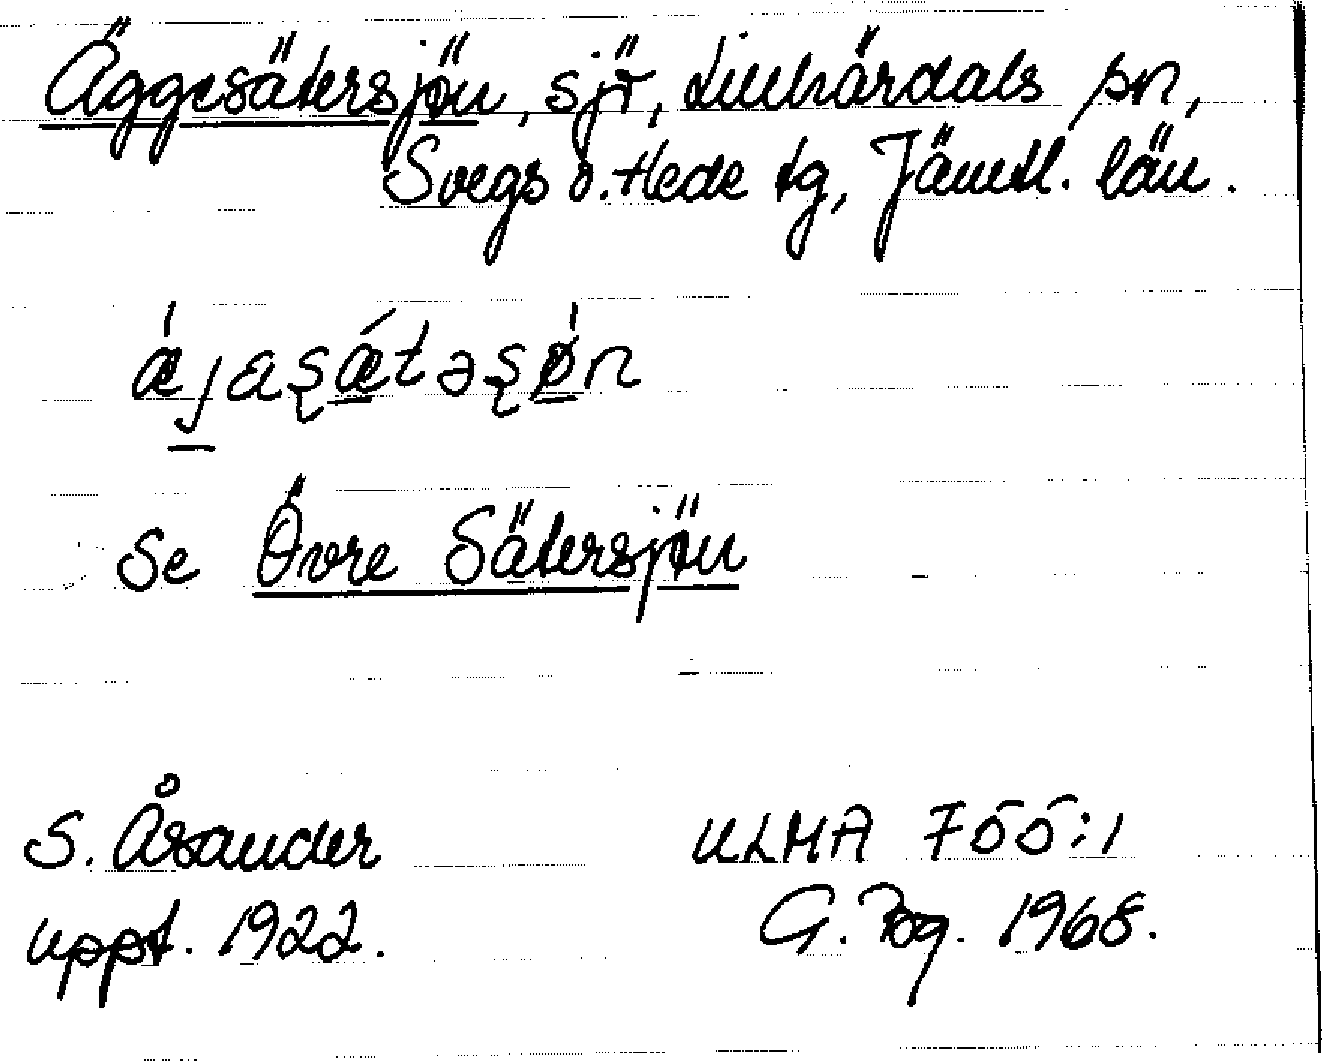 Äggesätersjön, sjö, Lillhärdals sn,
Svegs o. Hede tg, Jämtl. län.
Se Övre Sätersjön
S. Åsander
uppt. 1922.
ULMA 755:1
G. 1968.